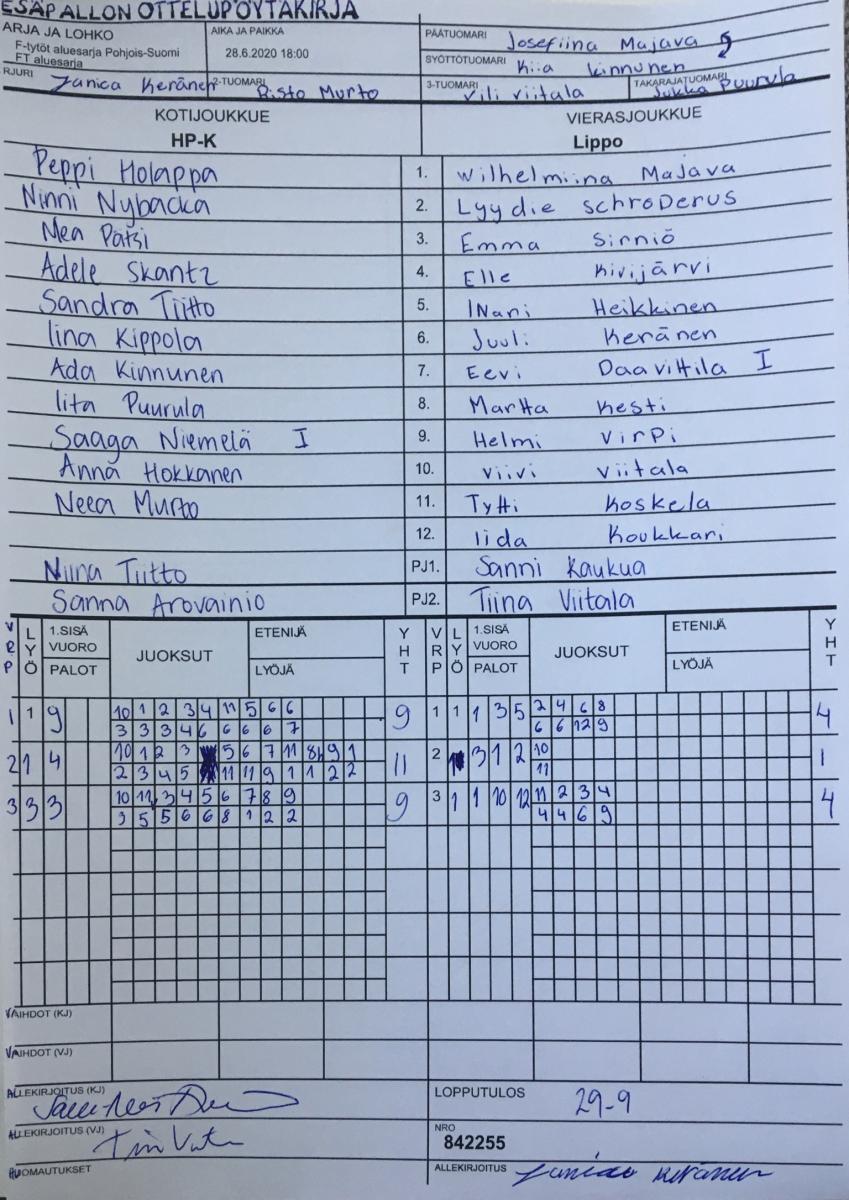 ESÄPALLON OTTELUPÖYTÄKIRJA
ARJA JA LOHKO
F-tytöt aluesarja Pohjois-Suomi
FT aluesarja
AIKA JA PAIKKA
28.6.2020 18:00
PÄÄTUOMARI Josefiina Majava
SYÖTTÖTUOMARI Kiia Kinnunen
RJURI Janica Keränen 2-TUOMARI Risto Murto 3-TUOMARI Vili Viitala TAKARAJATUOMARI Jukka Puurula
KOTIJOUKKUE VIERASJOUKKUE
HP-K Lippo
Peppi Holappa 1. Wilhelmiina Majava
Ninni Nybacka 2. Lyydie Schroderus
Mea Pätsi 3. Emma Sirniö
Adele Skantz 4. Elle Kivijärvi
Sandra Tiitto 5. INari Heikkinen
Iina Kippola 6. Juuli Keränen
Ada Kinnunen 7. Eevi Daavittila I
Iita Puurula 8. Martta Kesti
Saaga Niemelä I 9. Helmi Virpi
Anna Hokkanen 10. Viivi Viitala
Neea Murto 11. Tytti Koskela
12. Iida Koukkari
Niina Tiitto PJ1. Sanni Kaukua
Sanna Arovainio PJ2. Tiina Viitala
VRP LYÖ 1.SISÄ VUORO PALOT JUOKSUT ETENIJÄ LYÖJÄ YHT VRP LYÖ 1.SISÄ VUORO PALOT JUOKSUT ETENIJÄ LYÖJÄ YHT
1 1 9 10 1 2 3 4 11 5 6 6 9 1 1 1 3 5 2 4 6 8 4
3 3 3 4 6 6 6 6 7 6 6 12 9
2 1 4 10 1 2 3 5 6 7 11 8 9 1 11 2 3 1 2 10 1
2 3 4 5 11 11 9 1 1 2 2 11
3 3 3 10 11 3 4 5 6 7 8 9 9 3 1 1 10 12 11 2 3 4 4
3 5 5 6 6 8 1 2 2 4 4 6 9
VAIHDOT (KJ)
VAIHDOT (VJ)
ALLEKIRJOITUS (KJ) LOPPUTULOS 29-9
ALLEKIRJOITUS (VJ) NRO
842255
HUOMAUTUKSET ALLEKIRJOITUS Janica Keränen